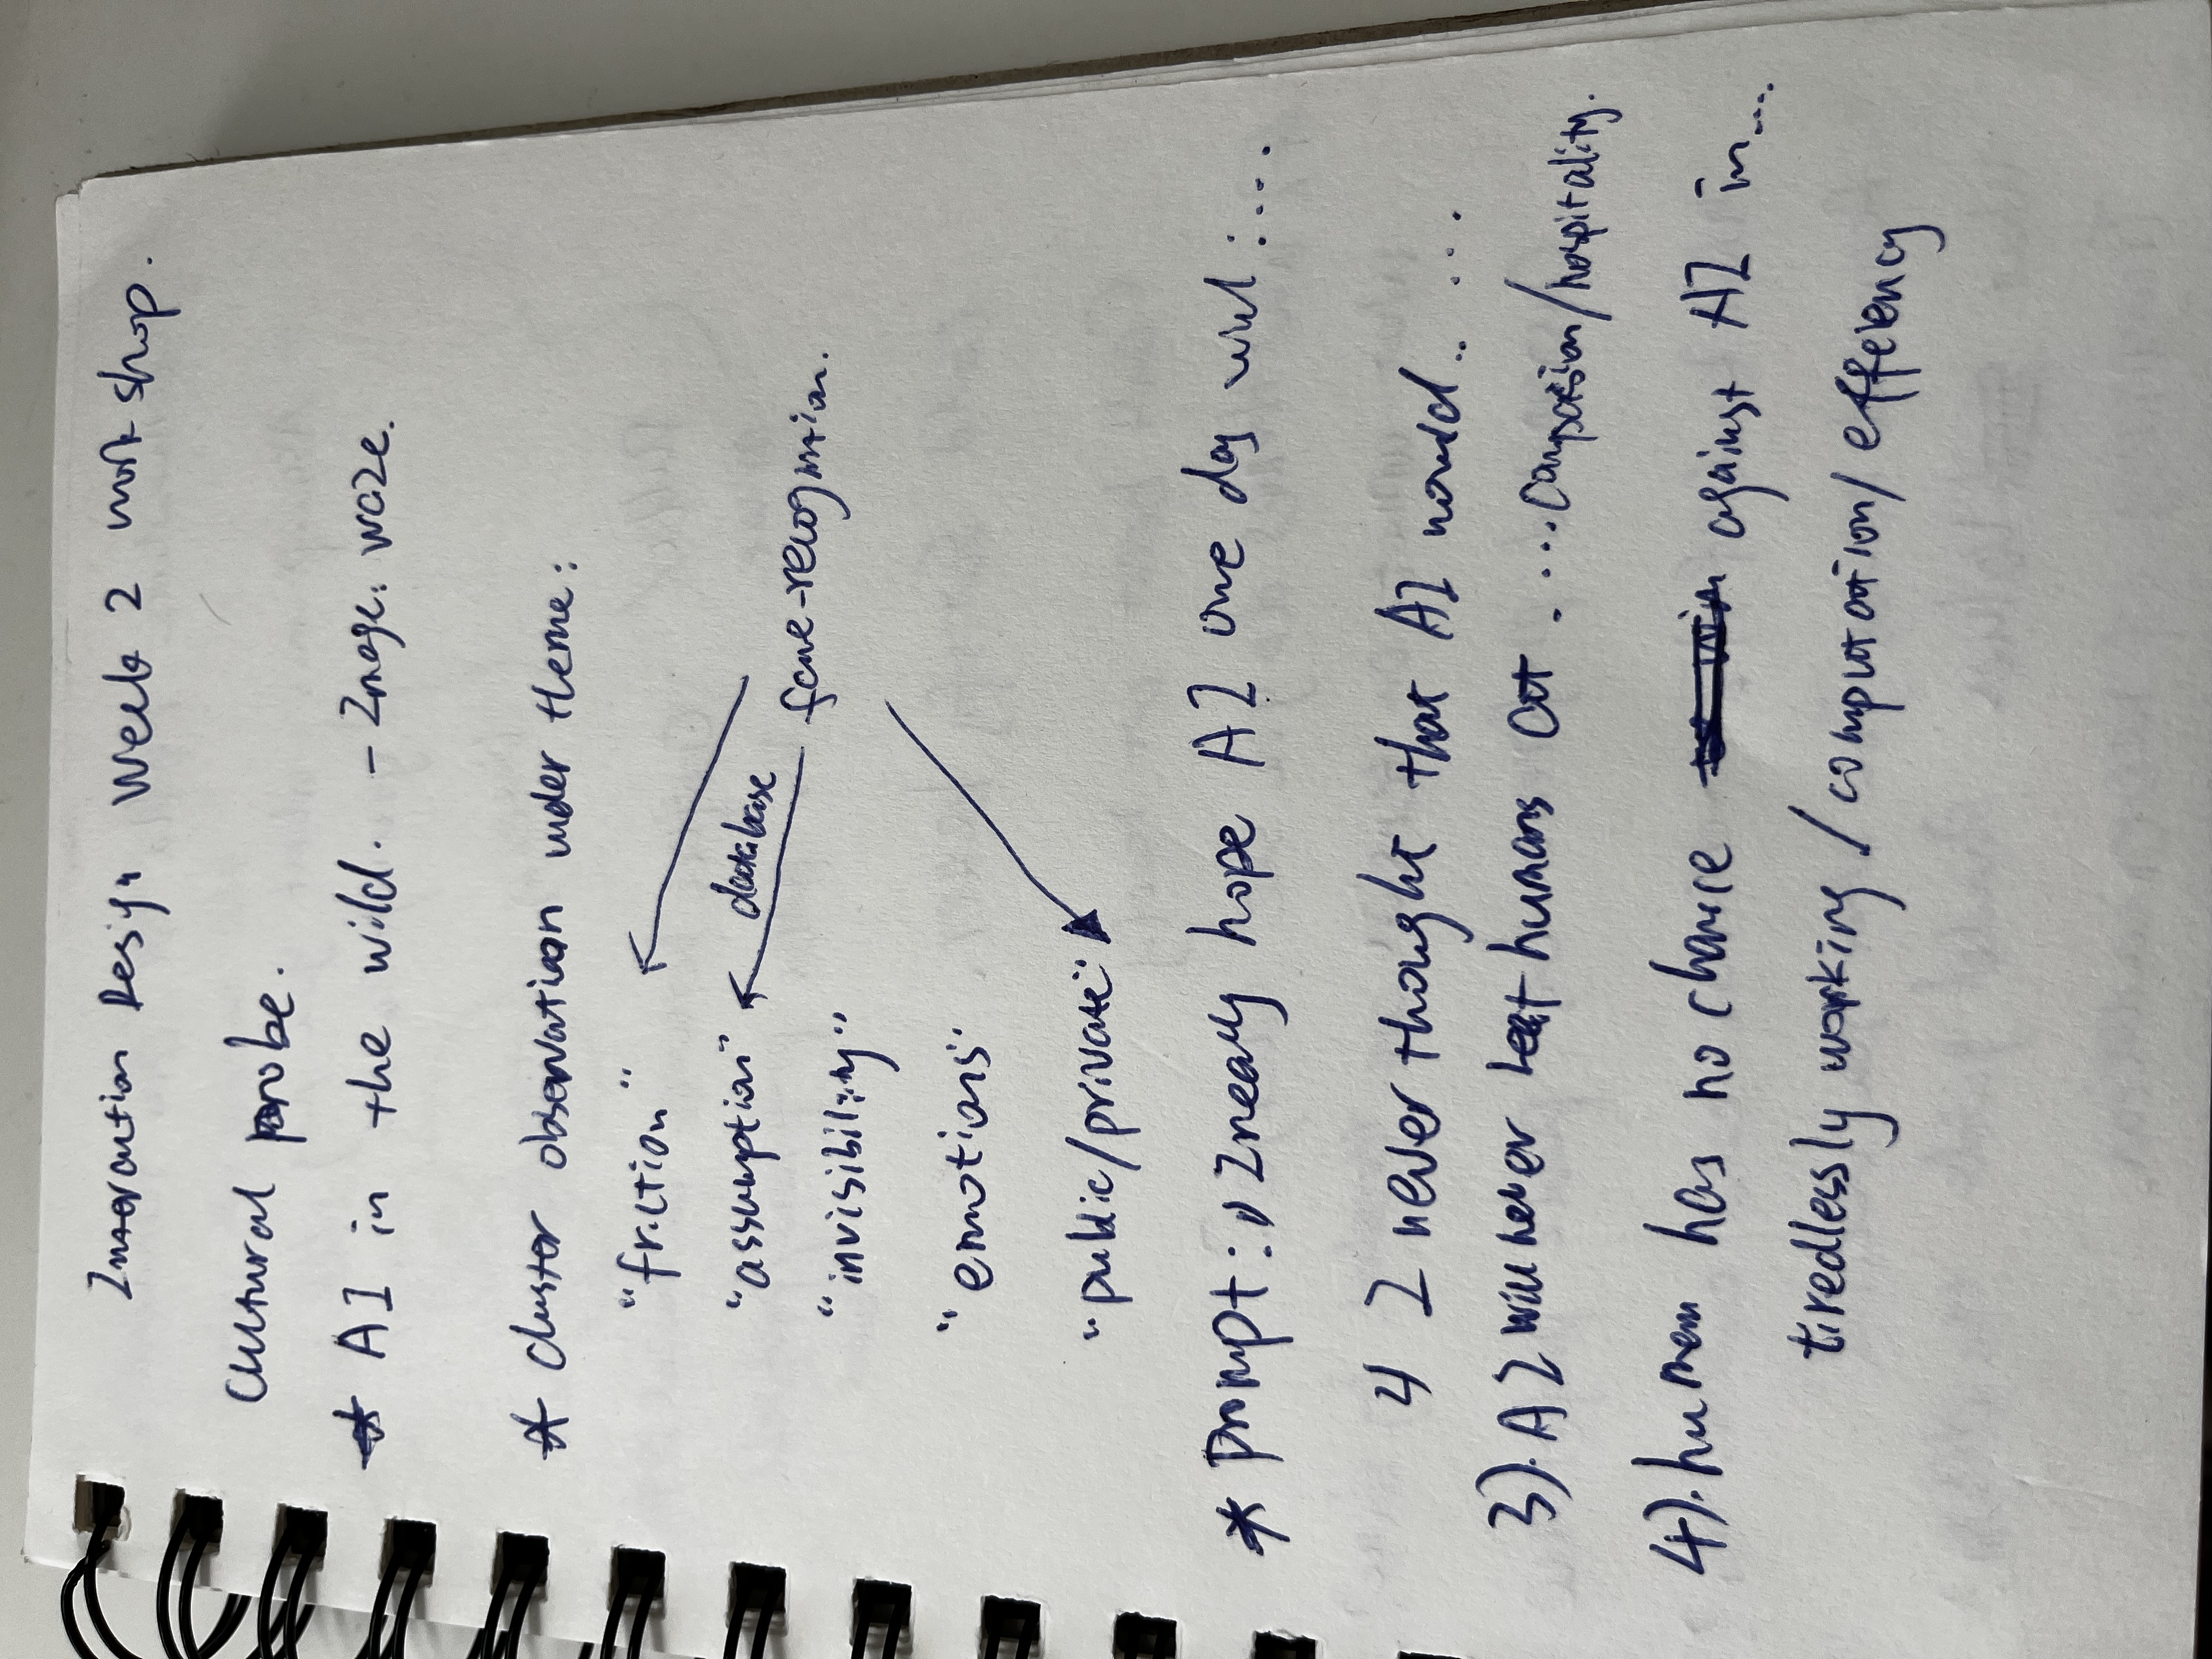 Interaction Design Week 2 workshop.
Cultural probe.
* AI in the wild. - Image: waze.
* cluster observation under theme:
"friction"
"assumption" database
face-recognition.
"invisibility"
"emotions"
"public/private"
* prompt: 1) I really hope AI one day will:....
2) I never thought that AI would.. ...
3). AI will never beat humans at . ... compassion/hospitality.
4). human has no chance against AI in....
tiredlessly working / computation / effeiency